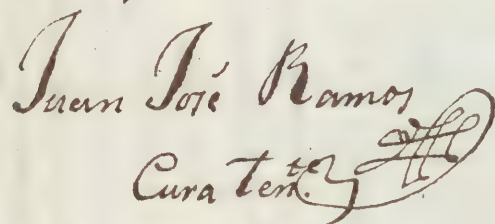 Juan José Ramos
Cura Ten.te